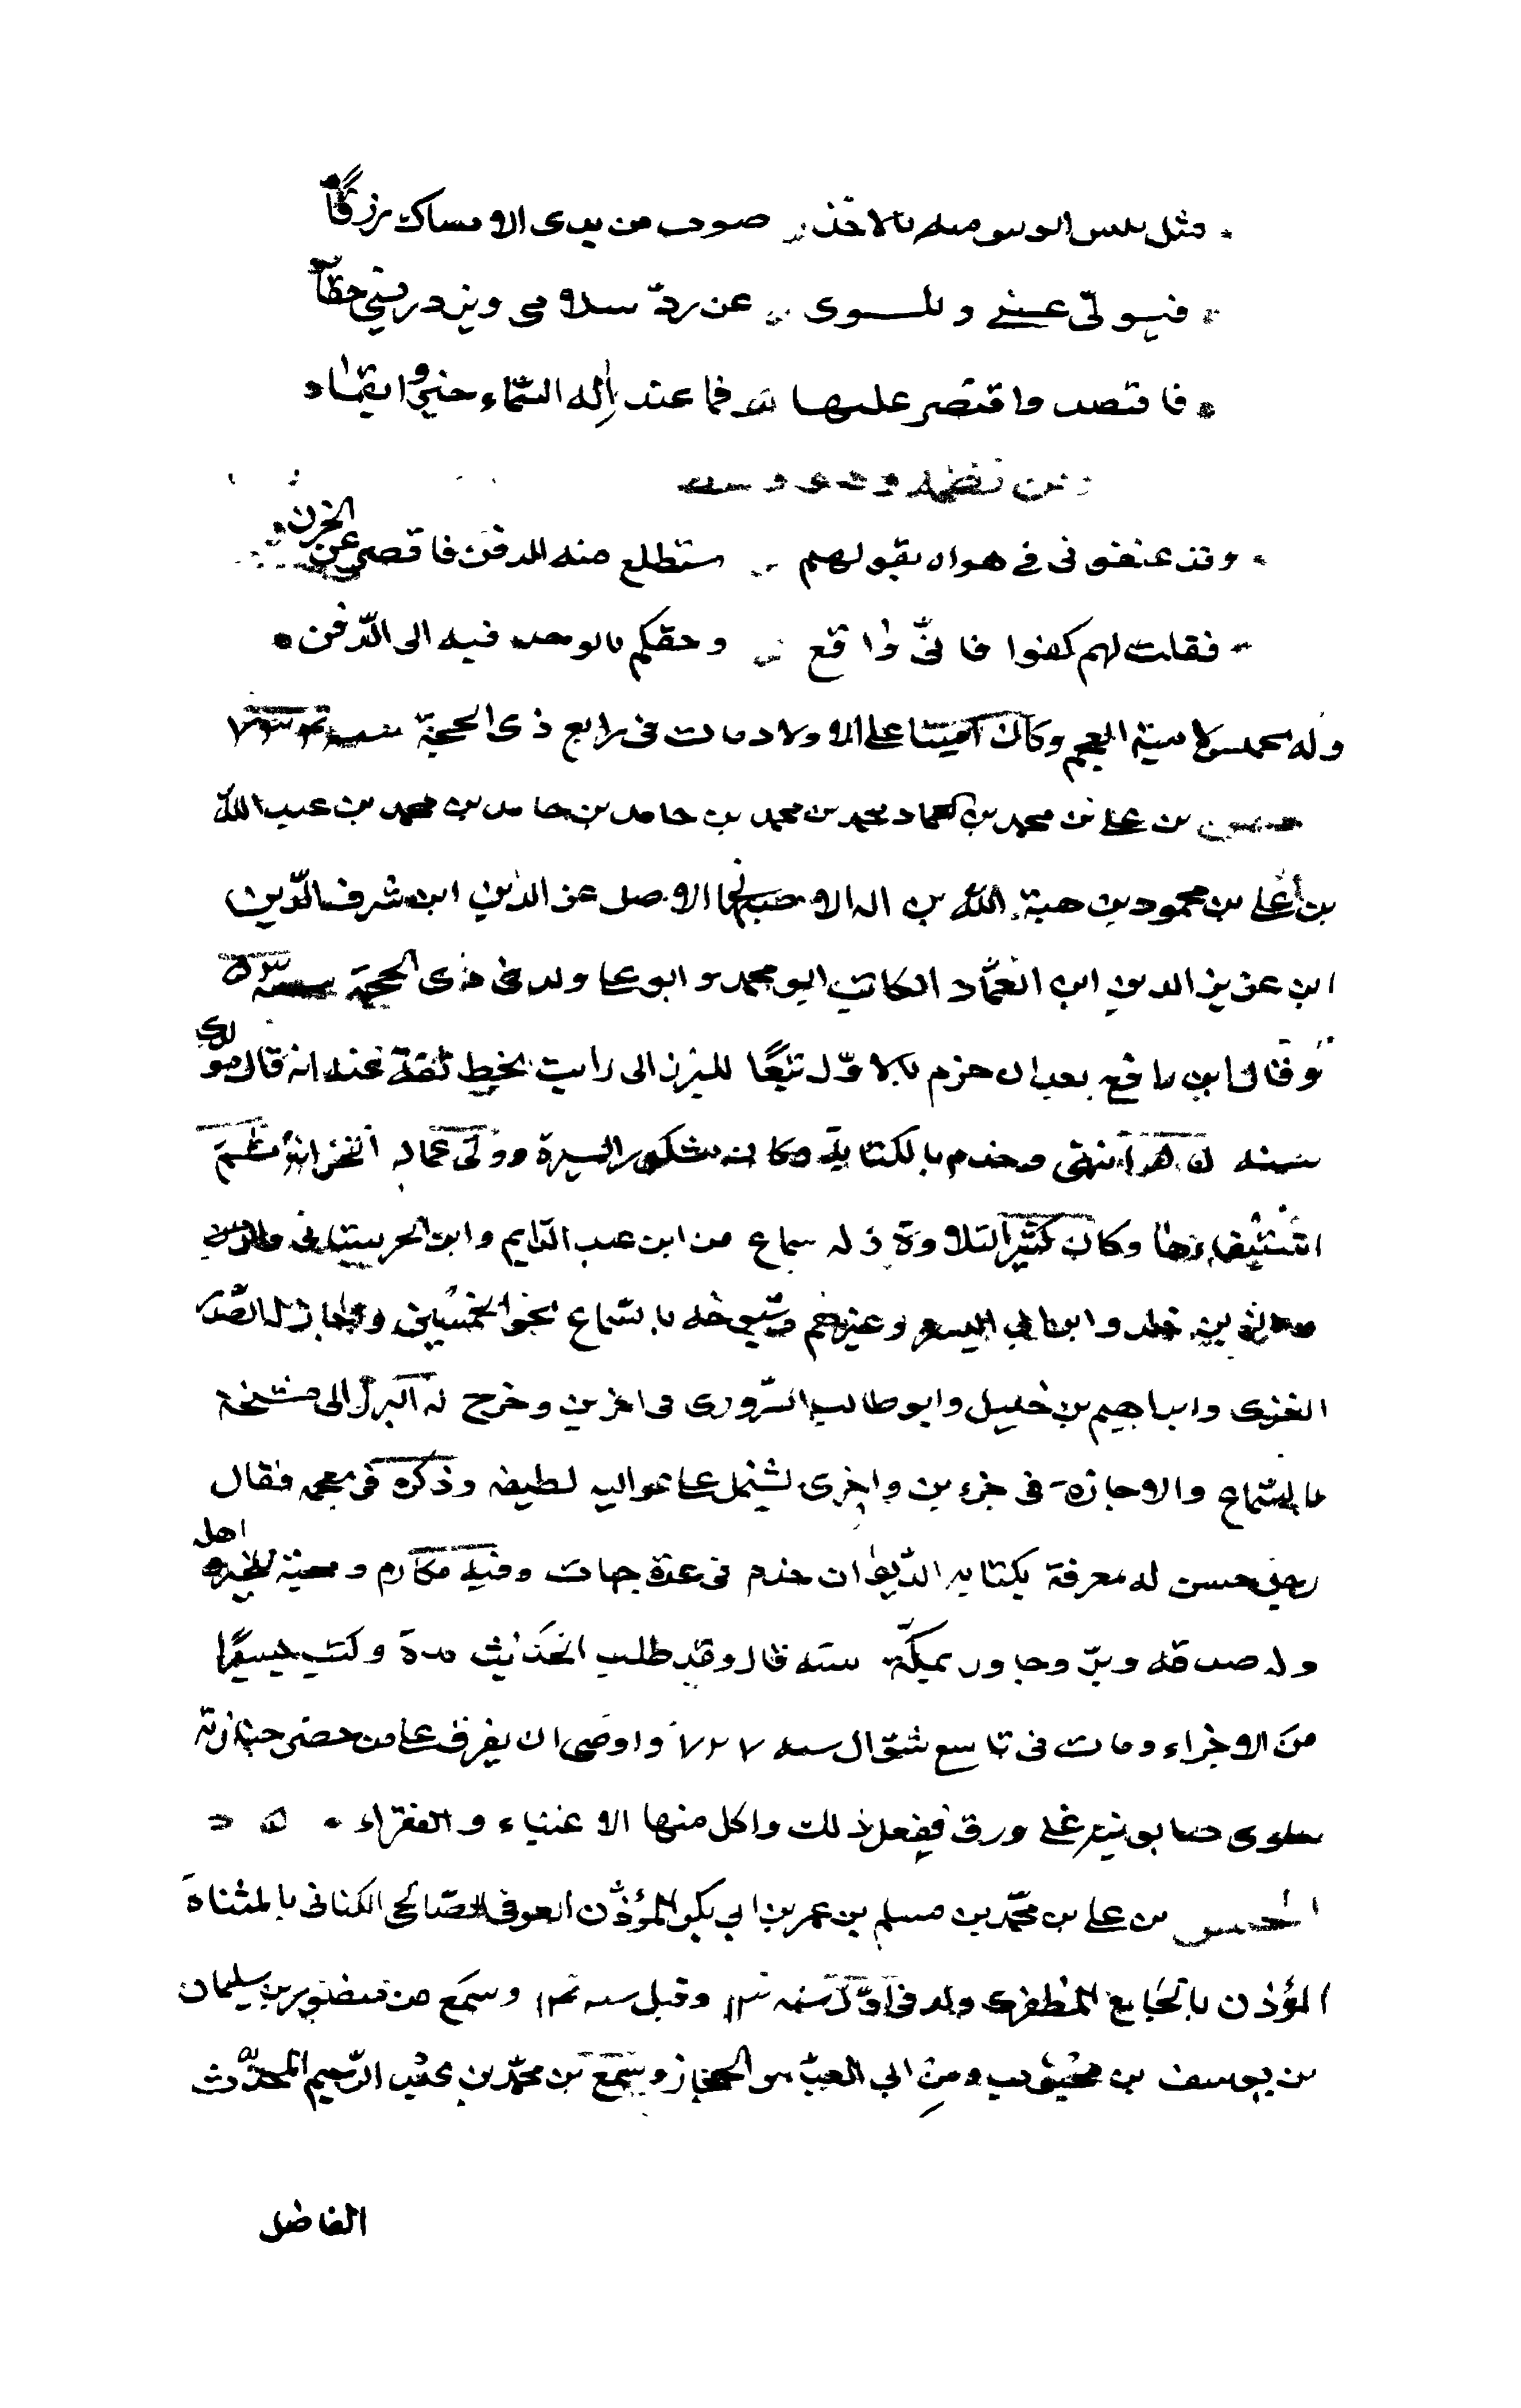 مثل بلس الوسو منه بالاخذ صوب من يدى الامساك رزقا
فيولى عنى وللسوى عن ردّ سلامى ويزدرينى حقا
فاقتصد واقتصر عليها فما عند إله السماء خير وابقى
ومن نظمه
وقد عنفونى فى هواه بقولهم ستطلع منه الدقن فاقصر عن الحزن
فقلت لهم كفوا فانّى واقع وحقكم بالوجد فيه الى الدّقن
وله لامية العجم وكان امينا على الاولاد مات فى رابع ذى الحجة سنه
حسن بن على بن محمد بن العماد محمد بن محمد بن حامد بن محمد بن عبد الله
بن على بن محمود بن هبة الله بن اله الاصبهانى الاصل عز الدين ابن شرف الدّين
ابن عزيز الدين ابن العماد الكاتب ابو محمد و ابو على ولد فى ذى الحجة سنة
وقال ابن رافع بعد ان جزم بالاول تبعًا للبرزالى رايت بخط ثقة عنه انه قال مولدى
سنه انتهى وخدم بالكتابة وكان مشكور السيرة وولى عمالة الخزانة ثم
استيفاءها وكان كثير التلاوة له سماع من ابن عبد الدايم وابن الحرستانى
بن خلد وابن ابى اليسر وغيرهم وشيوخه بالسّماع نحو الخمسين واجاز له الصّدر
البكرى وابراهيم بن خليل وابو طالب السّرورى فى اخرين وخرج له البرزالى مشيخة
بالسّماع والاجازة فى جزءين واخرى تشتمل على عواليه لطيفه وذكره فى معجمه فقال
رجل حسن له معرفة بكتابة الدّيوان خدم فى عدة جهات وفيه مكارم ومحبة لاهل الخير
وله صدقه وبرّ وجاور بمكّة سنه قال وقد طلب الحديث مدة وكتب يسيرًا
من الاجزاء ومات فى تاسع شوّال سنه ٧٢٧ واوصى ان يفرق على من حضر جنازته
حلوى صابونيه على ورق ففعل ذلك واكل منها الاغنياء والفقراء
الحسن بن على بن محمّد بن مسلم بن عمر بن ابى بكر المؤذّن العوفى الصّالحى الكتانى بالمثناة
المؤذن بالجامع المظفرى ولد فى اوّل سنه وقبل سنه وسمع من منصور بن سليمان
بن يوسف بن ومن ابى العبّاس الحجاز وسمع من محمّد بن عبد الرّحيم المحدّث
الفاضل